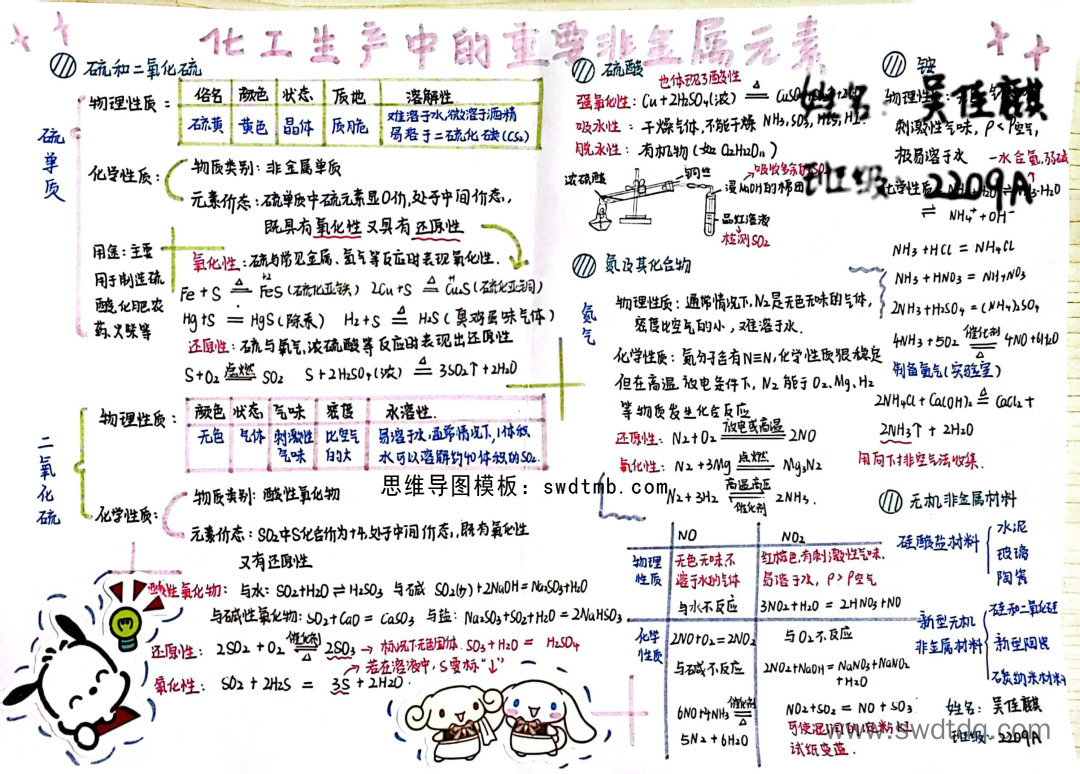 化工生产中的重要非金属元素
硫和二氧化硫
硫单质
物理性质:
俗名 颜色 状态 质地 溶解性
硫黄 黄色 晶体 质脆 难溶于水,微溶于酒精
易溶于二硫化碳(CS2)
化学性质:
物质类别: 非金属单质
元素价态: 硫单质中硫元素显0价,处于中间价态,
既具有氧化性又具有还原性
用途: 主要
用于制造硫
酸、化肥、农
药、火柴等
氧化性: 硫与常见金属、氢气等反应时表现氧化性.
Fe + S △= FeS (硫化亚铁) 2Cu + S △= Cu2S (硫化亚铜)
Hg + S = HgS (除汞) H2 + S △= H2S (臭鸡蛋味气体)
还原性: 硫与氧气,浓硫酸等反应时表现出还原性
S+O2 点燃= SO2 S + 2H2SO4(浓) △= 3SO2↑ + 2H2O
二氧化硫
物理性质:
颜色 状态 气味 密度 水溶性.
无色 气体 刺激性气味 比空气的大 易溶于水,通常情况下,1体积
水可以溶解约40体积的SO2.
化学性质:
物质类别: 酸性氧化物
元素价态: SO2中S化合价为+4,处于中间价态,既有氧化性
又有还原性
酸性氧化物: 与水: SO2+H2O ⇌ H2SO3 与碱 SO2(少)+2NaOH=Na2SO3+H2O
与碱性氧化物: SO2+CaO = CaSO3 与盐: Na2SO3+SO2+H2O=2NaHSO3
还原性: 2SO2 + O2 催化剂⇌△ 2SO3 → 标况下无色固体. SO3 + H2O = H2SO4
→ 若在溶液中,S要标“↓”
氧化性: SO2 + 2H2S = 3S + 2H2O.
硫酸
也体现了酸性
强氧化性: Cu + 2H2SO4(浓) △= CuSO4
吸水性: 干燥气体,不能干燥 NH3,SO3,
脱水性: 有机物 (如 C12H22O11)
吸收多余的SO2
浓硫酸
铜丝
浸NaOH的棉团
品红溶液
检测SO2
氮及其化合物
氮气
物理性质: 通常情况下,N2是无色无味的气体,
密度比空气的小,难溶于水.
化学性质: 氮分子含有N≡N,化学性质很稳定
但在高温,放电条件下,N2能于O2、Mg、H2
等物质发生化合反应
还原性: N2+O2 放电或高温= 2NO
氧化性: N2 + 3Mg 点燃= Mg3N2
N2 + 3H2 高温高压⇌催化剂 2NH3.
思维导图模板: swdtmb.com
NO NO2
物理性质 无色无味不溶于水的气体 红棕色,有刺激性气味,
易溶于水, ρ > ρ空气
化学性质 与水不反应 3NO2+H2O = 2HNO3+NO
2NO+O2=2NO2 与O2不反应
与碱不反应 2NO2+NaOH = NaNO3+NaNO2
+H2O
6NO+4NH3 催化剂=△ 5N2 + 6H2O
NO2+SO2 = NO + SO3
可使湿润的淀粉KI
试纸变蓝.
铵
姓名: 吴佳麒
班级: 2209A
物理性质:
刺激性气味, ρ<ρ空气,
极易溶于水
一水合氨,弱碱
化学性质:
⇌ NH4+ + OH-
NH3 + HCl = NH4Cl
NH3 + HNO3 = NH4NO3
2NH3 + H2SO4 = (NH4)2SO4
4NH3 + 5O2 催化剂=△ 4NO+6H2O
制备氨气(实验室)
2NH4Cl + Ca(OH)2 △= CaCl2 +
2NH3↑ + 2H2O
用向下排空气法收集.
无机非金属材料
硅酸盐材料
水泥
玻璃
陶瓷
新型无机
非金属材料
硅和二氧化硅
新型陶瓷
碳纳米材料
姓名: 吴佳麒
班级: 2209A
www.swdtdq.com